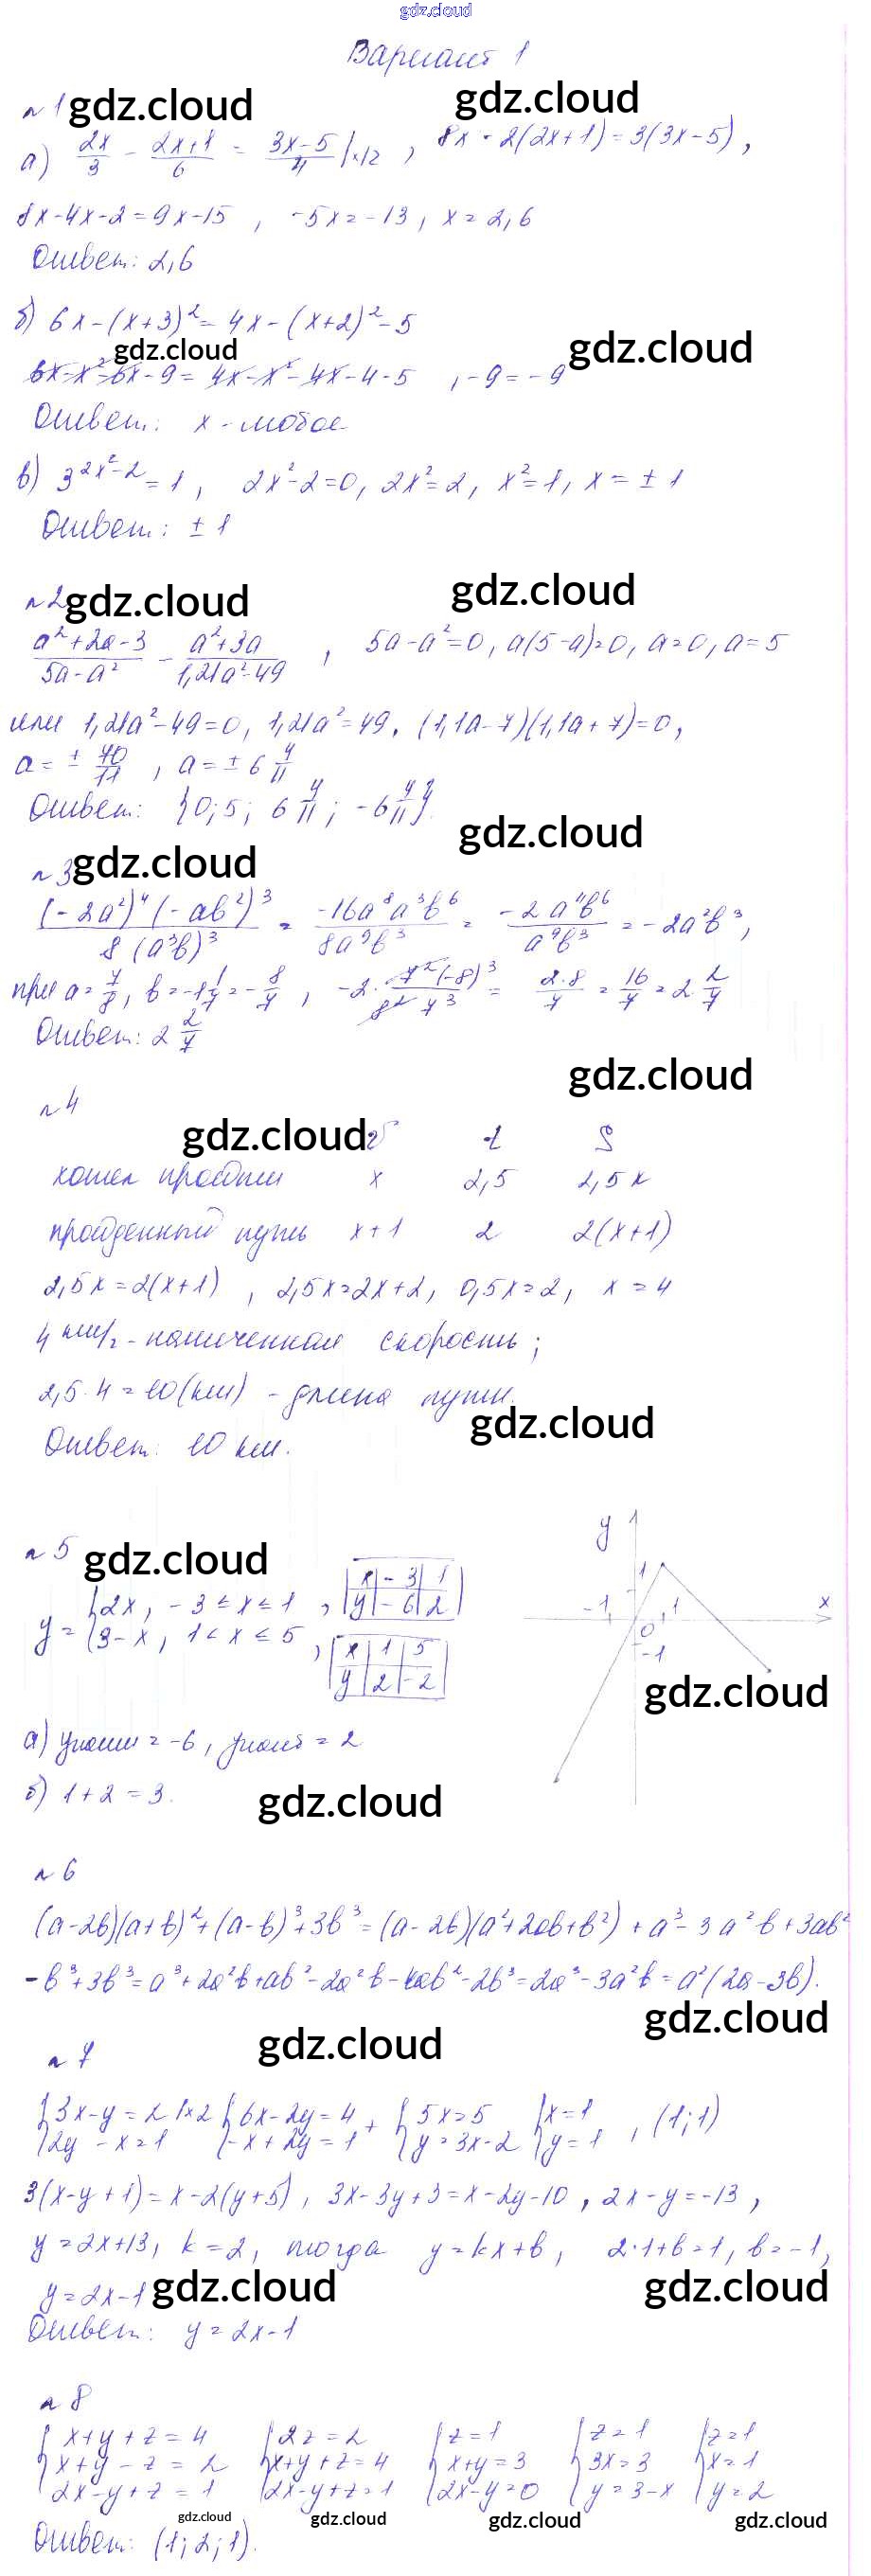 gdz.cloud
Вариант 1
№1 gdz.cloud gdz.cloud
а) 2x/3 - (2x+1)/6 = (3x-5)/4 |×12 , 8x - 2(2x+1) = 3(3x-5),
8x-4x-2=9x-15 , -5x=-13, x=2,6
Ответ: 2,6
б) 6x-(x+3)²=4x-(x+2)²-5
gdz.cloud gdz.cloud
6x-x²-6x-9=4x-x²-4x-4-5 , -9=-9
Ответ: x-любое
в) 3^(2x²-2)=1, 2x²-2=0, 2x²=2, x²=1, x=±1
Ответ: ±1
№2 gdz.cloud gdz.cloud
(a²+2a-3)/(5a-a²) - (a²+3a)/(1,21a²-49) , 5a-a²=0, a(5-a)=0, a=0, a=5
или 1,21a²-49=0, 1,21a²=49, (1,1a-7)(1,1a+7)=0,
a=± 70/11 , a=± 6 4/11
Ответ: {0; 5; 6 4/11; -6 4/11}.
gdz.cloud
№3 gdz.cloud
(-2a²)⁴(-ab²)³/(8(a³b)³) = -16a⁸a³b⁶/(8a⁹b³) = -2a¹¹b⁶/(a⁹b³) = -2a²b³,
при a=7/8, b=-1 1/7=-8/7 , -2·7²(-8)³/(8²7³) = 2·8/7 = 16/7 = 2 2/7
Ответ: 2 2/7
gdz.cloud
№4
gdz.cloud v t S
хотел пройти x 2,5 2,5x
пройденный путь x+1 2 2(x+1)
2,5x=2(x+1) , 2,5x=2x+2, 0,5x=2, x=4
4 км/ч - намеченная скорость;
2,5·4=10(км) - длина пути.
gdz.cloud
Ответ: 10 км.
№5 gdz.cloud
y = {2x, -3≤x≤1 , x -3 1 y -6 2
{3-x, 1<x≤5 , x 1 5 y 2 -2
y 1 -1 0 1 x -1
gdz.cloud
а) yнаим=-6, yнаиб=2
б) 1+2=3.
gdz.cloud
№6
(a-2b)(a+b)²+(a-b)³+3b³=(a-2b)(a²+2ab+b²)+a³-3a²b+3ab²
-b³+3b³=a³+2a²b+ab²-2a²b-4ab²-2b³=2a³-3a²b=a²(2a-3b).
gdz.cloud
№7 gdz.cloud
{3x-y=2 |×2 {6x-2y=4 + {5x=5 {x=1
{2y-x=1 {-x+2y=1 {y=3x-2 {y=1 , (1;1)
3(x-y+1)=x-2(y+5), 3x-3y+3=x-2y-10, 2x-y=-13,
y=2x+13, k=2, тогда y=kx+b, 2·1+b=1, b=-1,
y=2x-1 gdz.cloud gdz.cloud
Ответ: y=2x-1
№8
{x+y+z=4 {2z=2 {z=1 {z=1 {z=1
{x+y-z=2 {x+y+z=4 {x+y=3 {3x=3 {x=1
{2x-y+z=1 {2x-y+z=1 {2x-y=0 {y=3-x {y=2
gdz.cloud gdz.cloud gdz.cloud gdz.cloud
Ответ: (1; 2; 1).